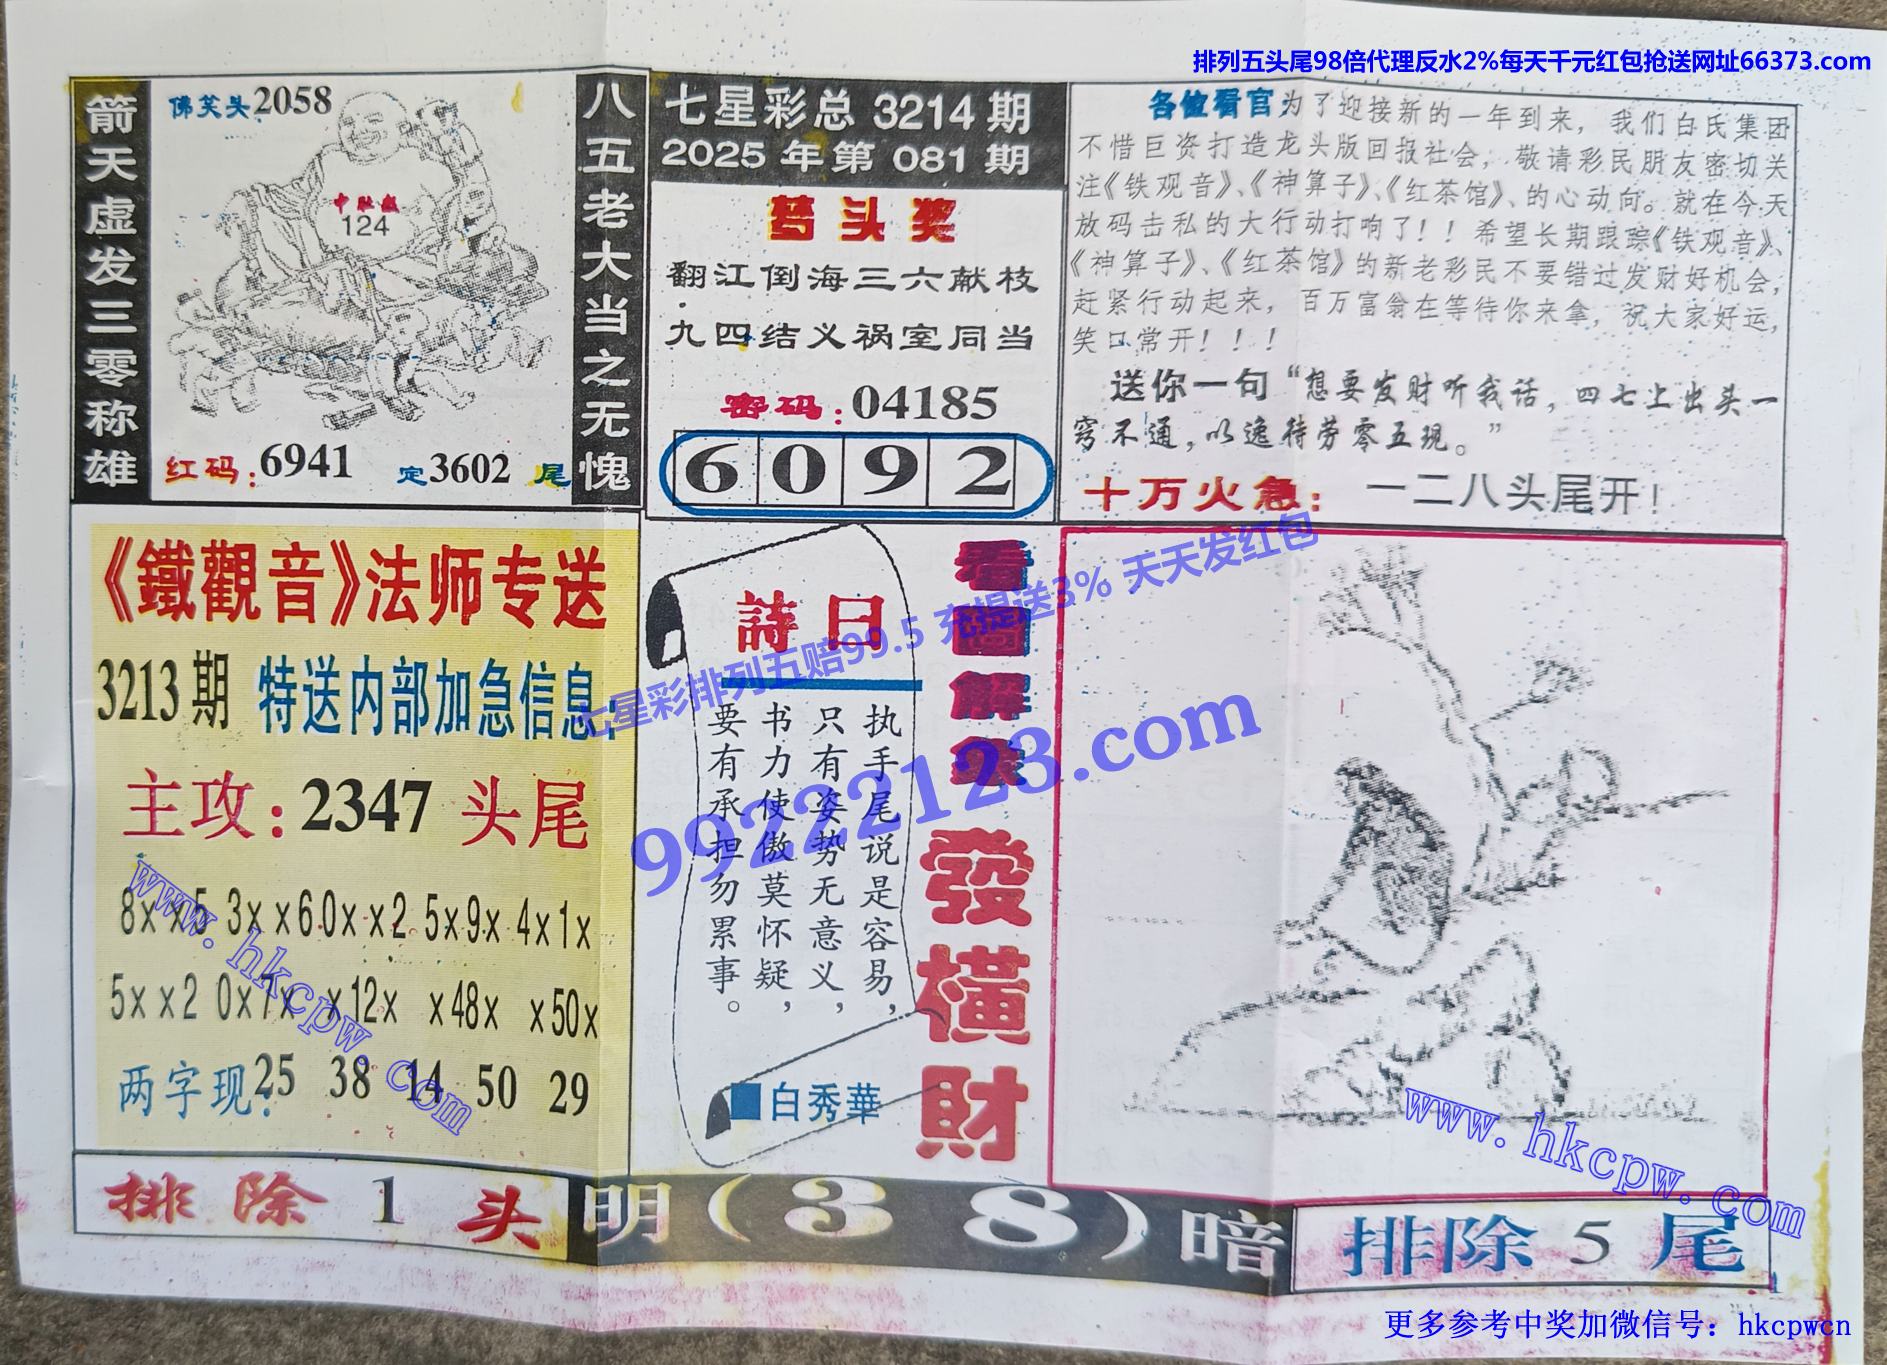 排列五头尾98倍代理反水2%每天千元红包抢送网址66373.com
箭天虚发三零称雄
佛笑头:2058
中肚数
124
红码:6941
定3602尾
八五老大当之无愧
七星彩总 3214 期
2025 年第 081 期
梦头奖
翻江倒海三六献枝
九四结义祸室同当
密码:04185
6 0 9 2
各位看官:为了迎接新的一年到来，我们白氏集团
不惜巨资打造龙头版回报社会，敬请彩民朋友密切关
注《铁观音》、《神算子》、《红茶馆》、的心动向。就在今天
放码击私的大行动打响了！！希望长期跟踪《铁观音》、
《神算子》、《红茶馆》的新老彩民不要错过发财好机会，
赶紧行动起来，百万富翁在等待你来拿，祝大家好运，
笑口常开！！！
送你一句“想要发财听我话，四七上出头一
窍不通，以逸待劳零五现。”
十万火急：一二八头尾开！
《鐵觀音》法师专送
3213期 特送内部加急信息:
主攻:2347头尾
8××5 3××6 0××2 5×9× 4×1×
5××2 0×7× ×12× ×48× ×50×
两字现:25 38 14 50 29
詩曰
执手尾说是容易，
只有姿势无意义，
书力使傲莫怀疑，
要有承担勿累事。
■白秀華
看圖解
發橫財
七星彩排列五赔99.5 充提送3% 天天发红包
99222123.com
www.hkcpw.com
www.hkcpw.com
排除1头
明(38)暗
排除5尾
更多参考中奖加微信号：hkcpwcn